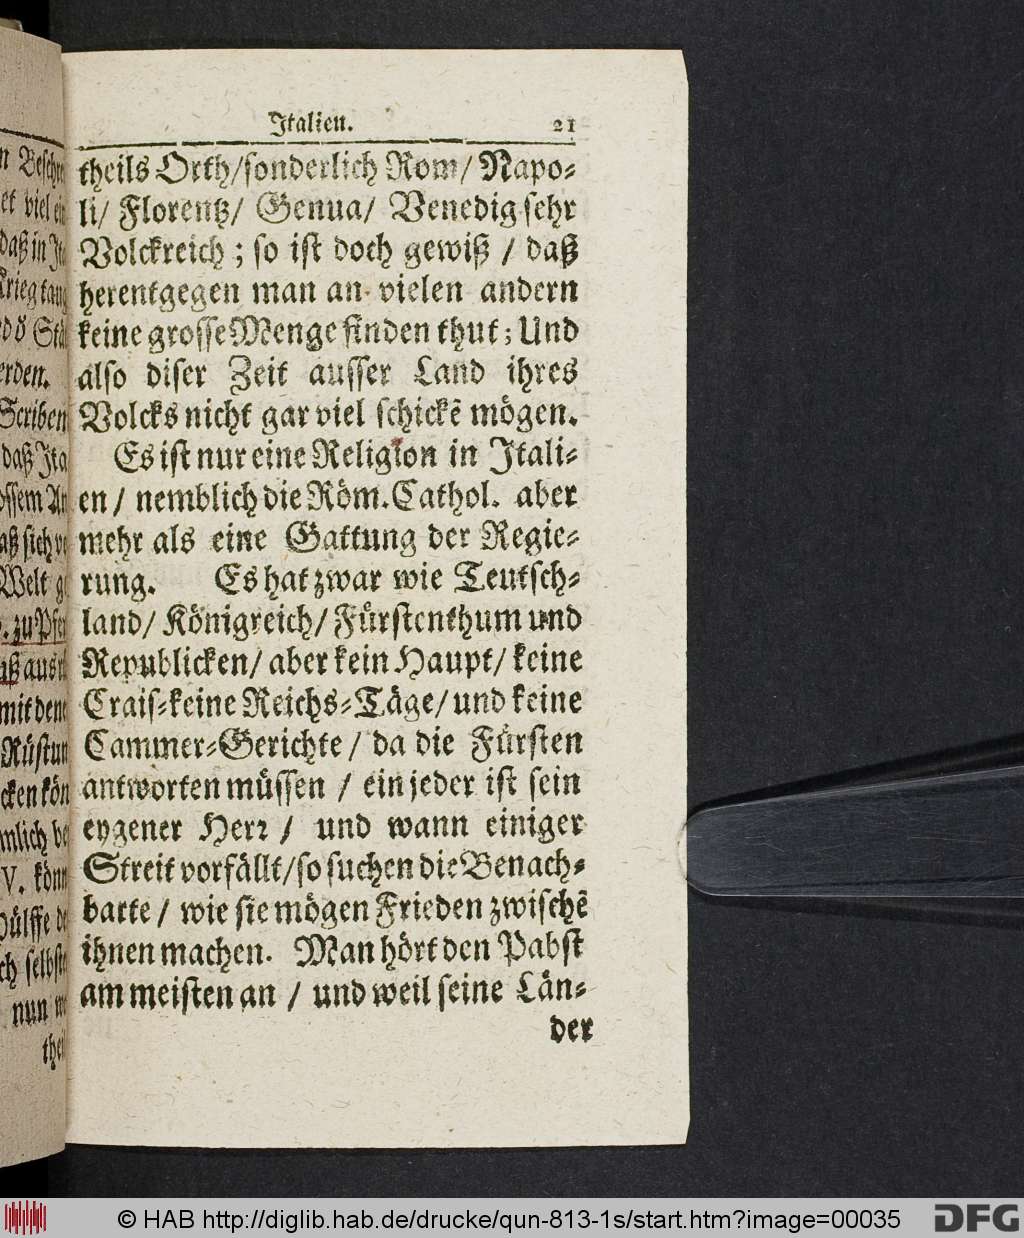 Italien. 21
theils Orth/ sonderlich Rom/ Napo-
li/ Florentz/ Genua/ Venedig sehr
Volckreich; so ist doch gewiß / daß
herentgegen man an vielen andern
keine grosse Menge finden thut; Und
also diser Zeit ausser Land ihres
Volcks nicht gar viel schickē mögen.
Es ist nur eine Religion in Itali-
en / nemblich die Röm. Cathol. aber
mehr als eine Gattung der Regie-
rung. Es hat zwar wie Teutsch-
land/ Königreich/ Fürstenthum und
Republicken/ aber kein Haupt/ keine
Crais-keine Reichs-Täge/ und keine
Cammer-Gerichte / da die Fürsten
antworten müssen / ein jeder ist sein
eygener Herr / und wann einiger
Streit vorfällt/ so suchen die Benach-
barte / wie sie mögen Frieden zwischē
ihnen machen. Man hört den Pabst
am meisten an / und weil seine Län-
der
© HAB http://diglib.hab.de/drucke/qun-813-1s/start.htm?image=00035
DFG